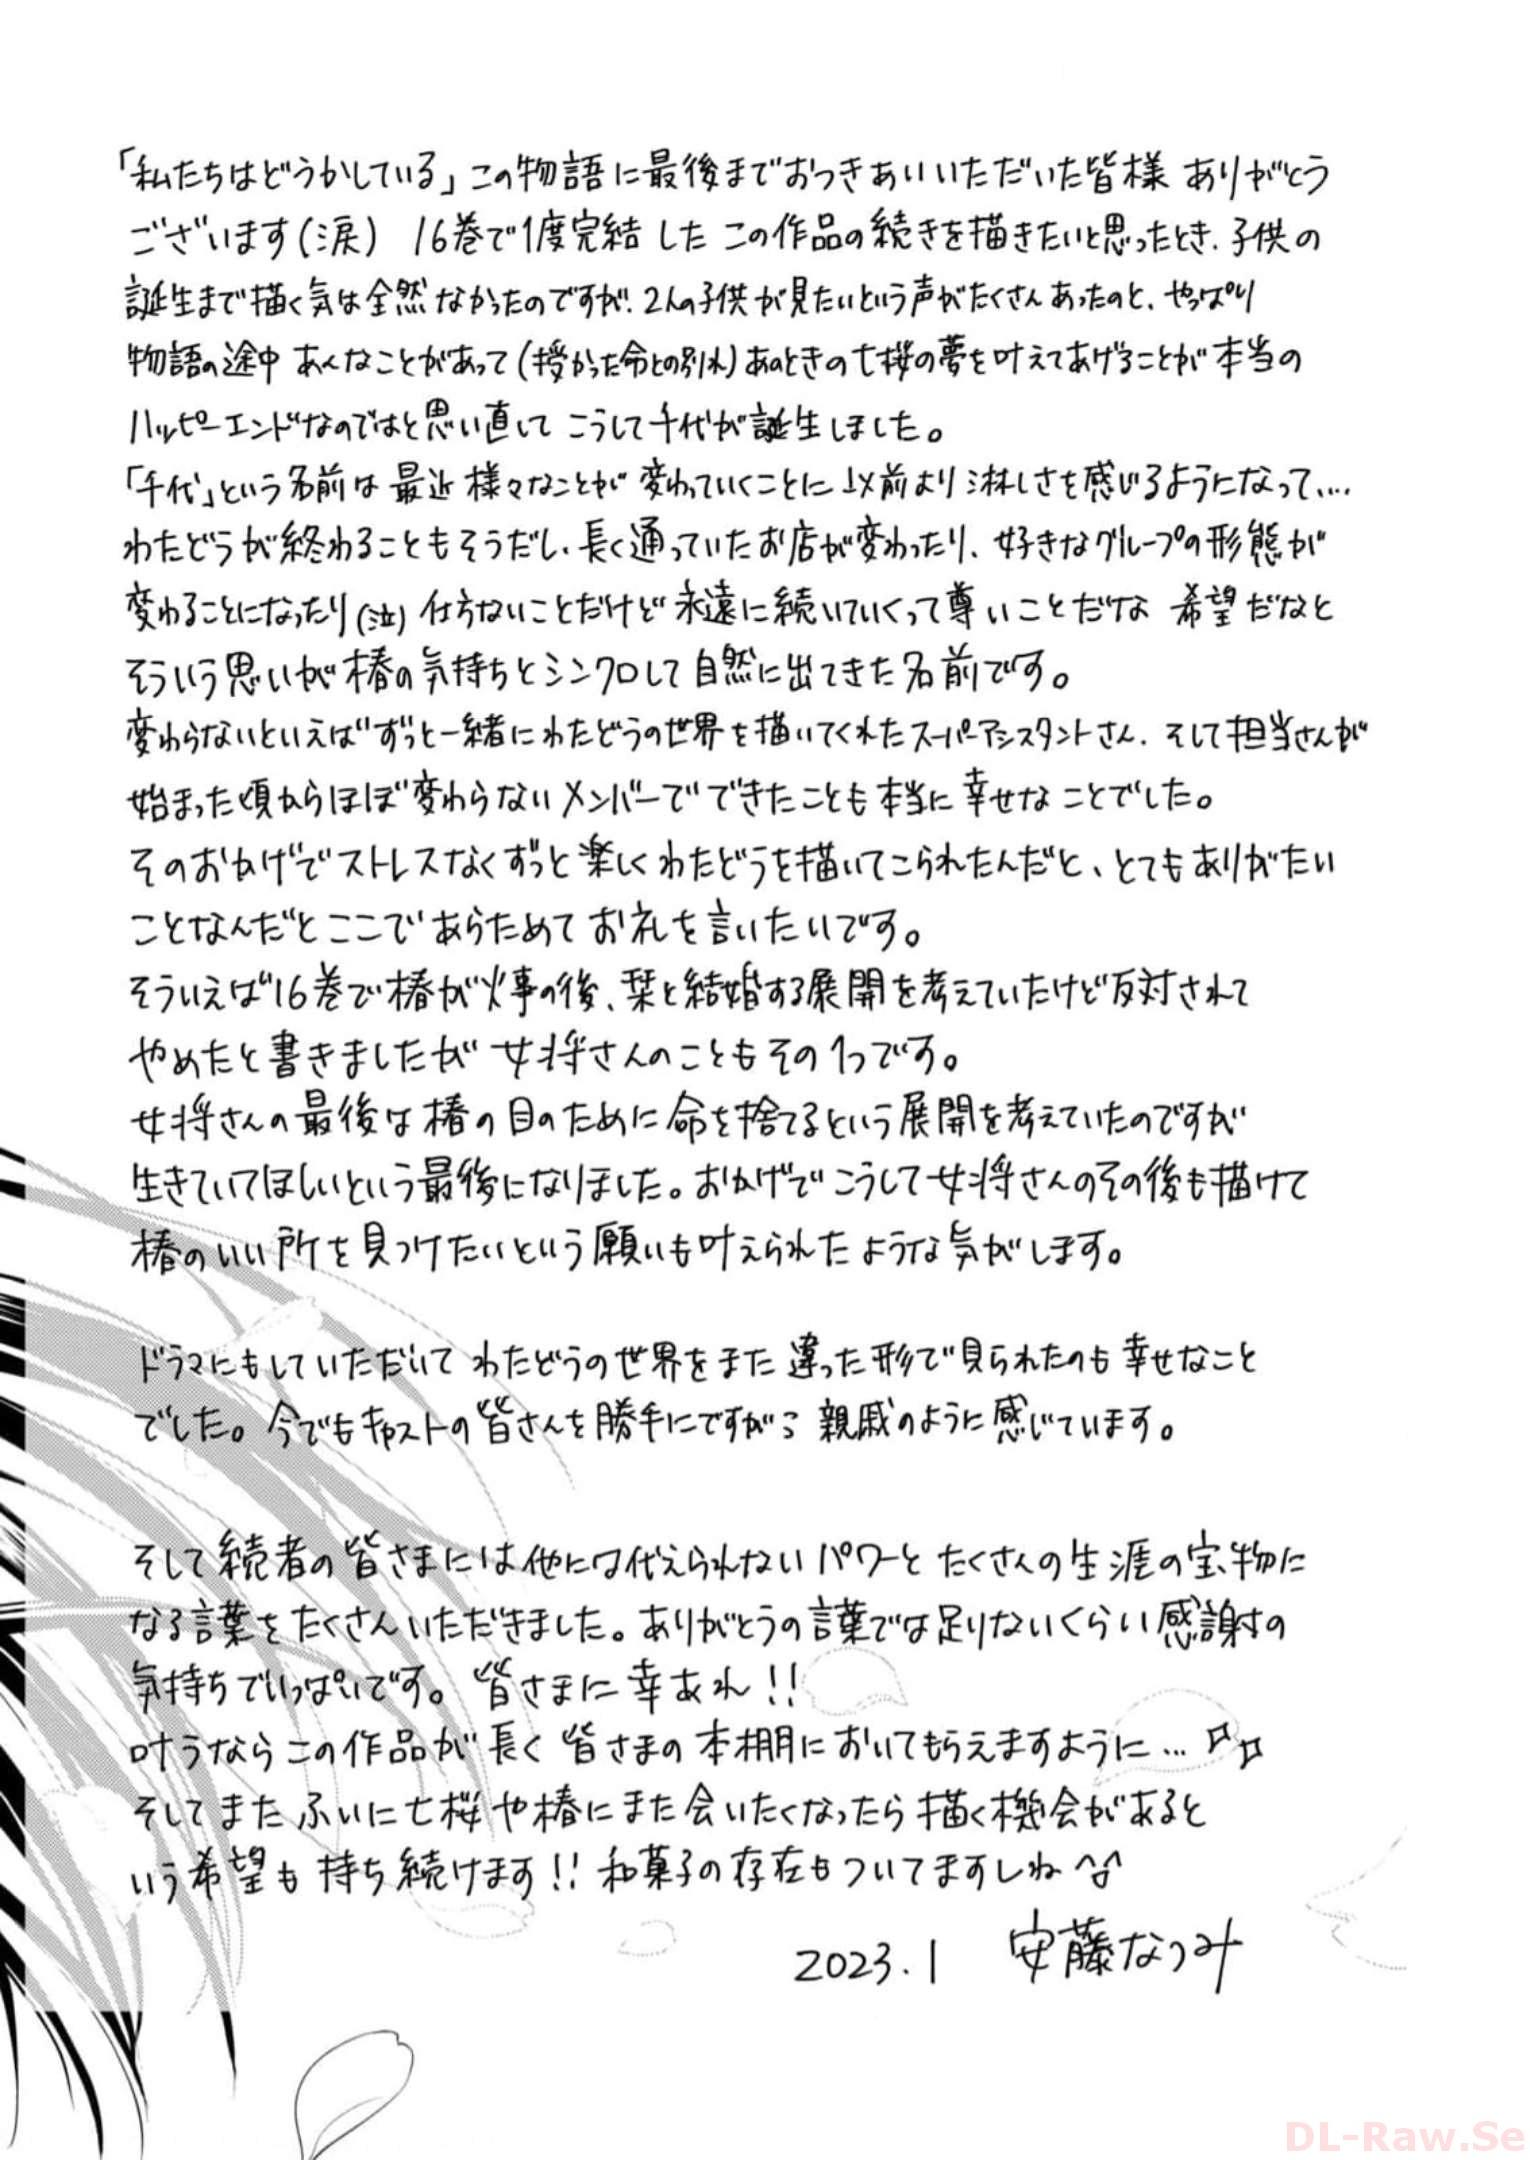 「私たちはどうかしている」この物語に最後までおつきあいいただいた皆様 ありがとう
ございます(涙) 16巻で1度完結した この作品の続きを描きたいと思ったとき、子供の
誕生まで描く気は全然なかったのですが、2人の子供が見たいという声がたくさんあったのと、やっぱり
物語の途中 あんなことがあって(授かった命との別れ)あのときの七桜の夢を叶えてあげることが本当の
ハッピーエンドなのではと思い直して こうして千代が誕生しました。
「千代」という名前は 最近 様々なことが 変わっていくことに 以前より淋しさを感じるようになって....
わたどうが終わることもそうだし、長く通っていたお店が変わったり、好きなグループの形態が
変わることになったり(泣) 仕方ないことだけど 永遠に続いていくって尊いことだな 希望だなと
そういう思いが椿の気持ちとシンクロして自然に出てきた名前です。
変わらないといえば ずっと一緒にわたどうの世界を描いてくれたスーパーアシスタントさん、そして担当さんが
始まった頃からほぼ変わらないメンバーでできたことも本当に幸せなことでした。
そのおかげでストレスなくずっと楽しくわたどうを描いてこられたんだと、とてもありがたい
ことなんだとここであらためてお礼を言いたいです。
そういえば16巻で椿が火事の後、栞と結婚する展開を考えていたけど反対されて
やめたと書きましたが 女将さんのこともその1つです。
女将さんの最後は椿の目のために命を捨てるという展開を考えていたのですが
生きていてほしいという最後になりました。おかげでこうして女将さんのその後も描けて
椿のいい所を見つけたいという願いも叶えられたような気がします。
ドラマにもしていただいて わたどうの世界をまた違った形で見られたのも幸せなこと
でした。今でもキャストの皆さんを勝手にですが 親戚のように感じています。
そして読者の皆さまには他には代えられないパワーと たくさんの生涯の宝物に
なる言葉をたくさんいただきました。ありがとうの言葉では足りないくらい感謝の
気持ちでいっぱいです。皆さまに幸あれ!!
叶うならこの作品が長く皆さまの本棚においてもらえますように...
そしてまた ふいに七桜や椿にまた会いたくなったら描く機会があると
いう希望も持ち続けます!! 和菓子の存在もついてますしね
2023.1 安藤なつみ
DL-Raw.Se